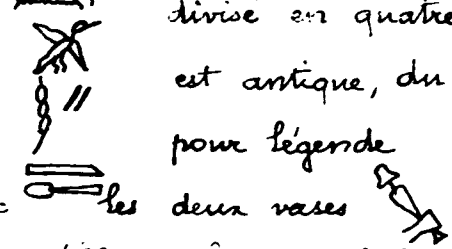 divisé en quatre
est antique, du
pour légende
les deux vases